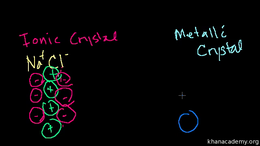 Ionic Crystal
Metallic
Crystal
Na⁺ Cl⁻
- + -
- + -
- + -
+
khanacademy.org